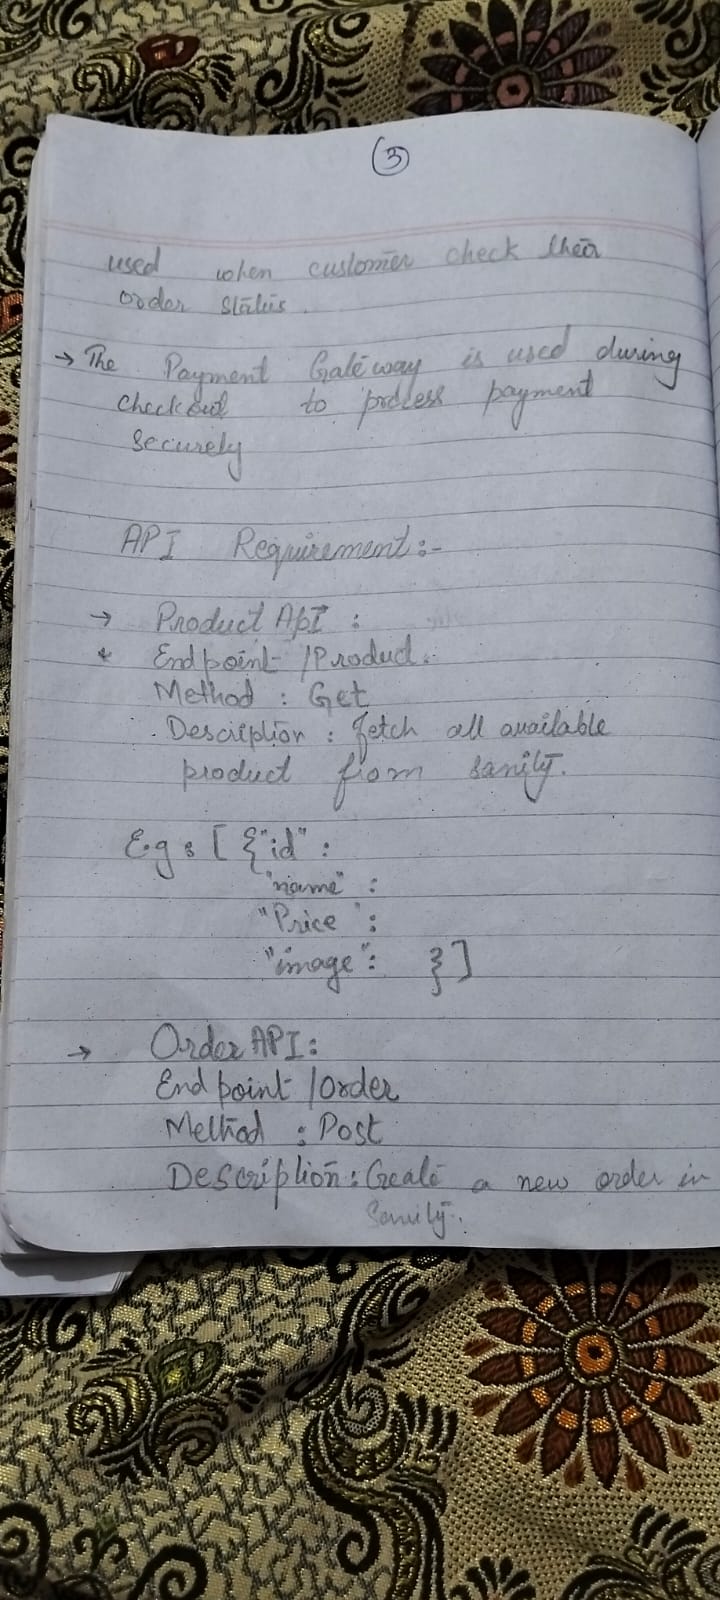 3
used when customer check their
order status.
→ The Payment Gateway is used during
checkout to process payment
securely
API Requirement:-
→ Product API :
* Endpoint /Product.
Method : Get
Description : fetch all available
product from sanity.
E.g : [ {"id" :
"name" :
"Price" :
"image": } ]
→ Order API:
Endpoint /Order
Method : Post
Description : Create a new order in
Sanity.